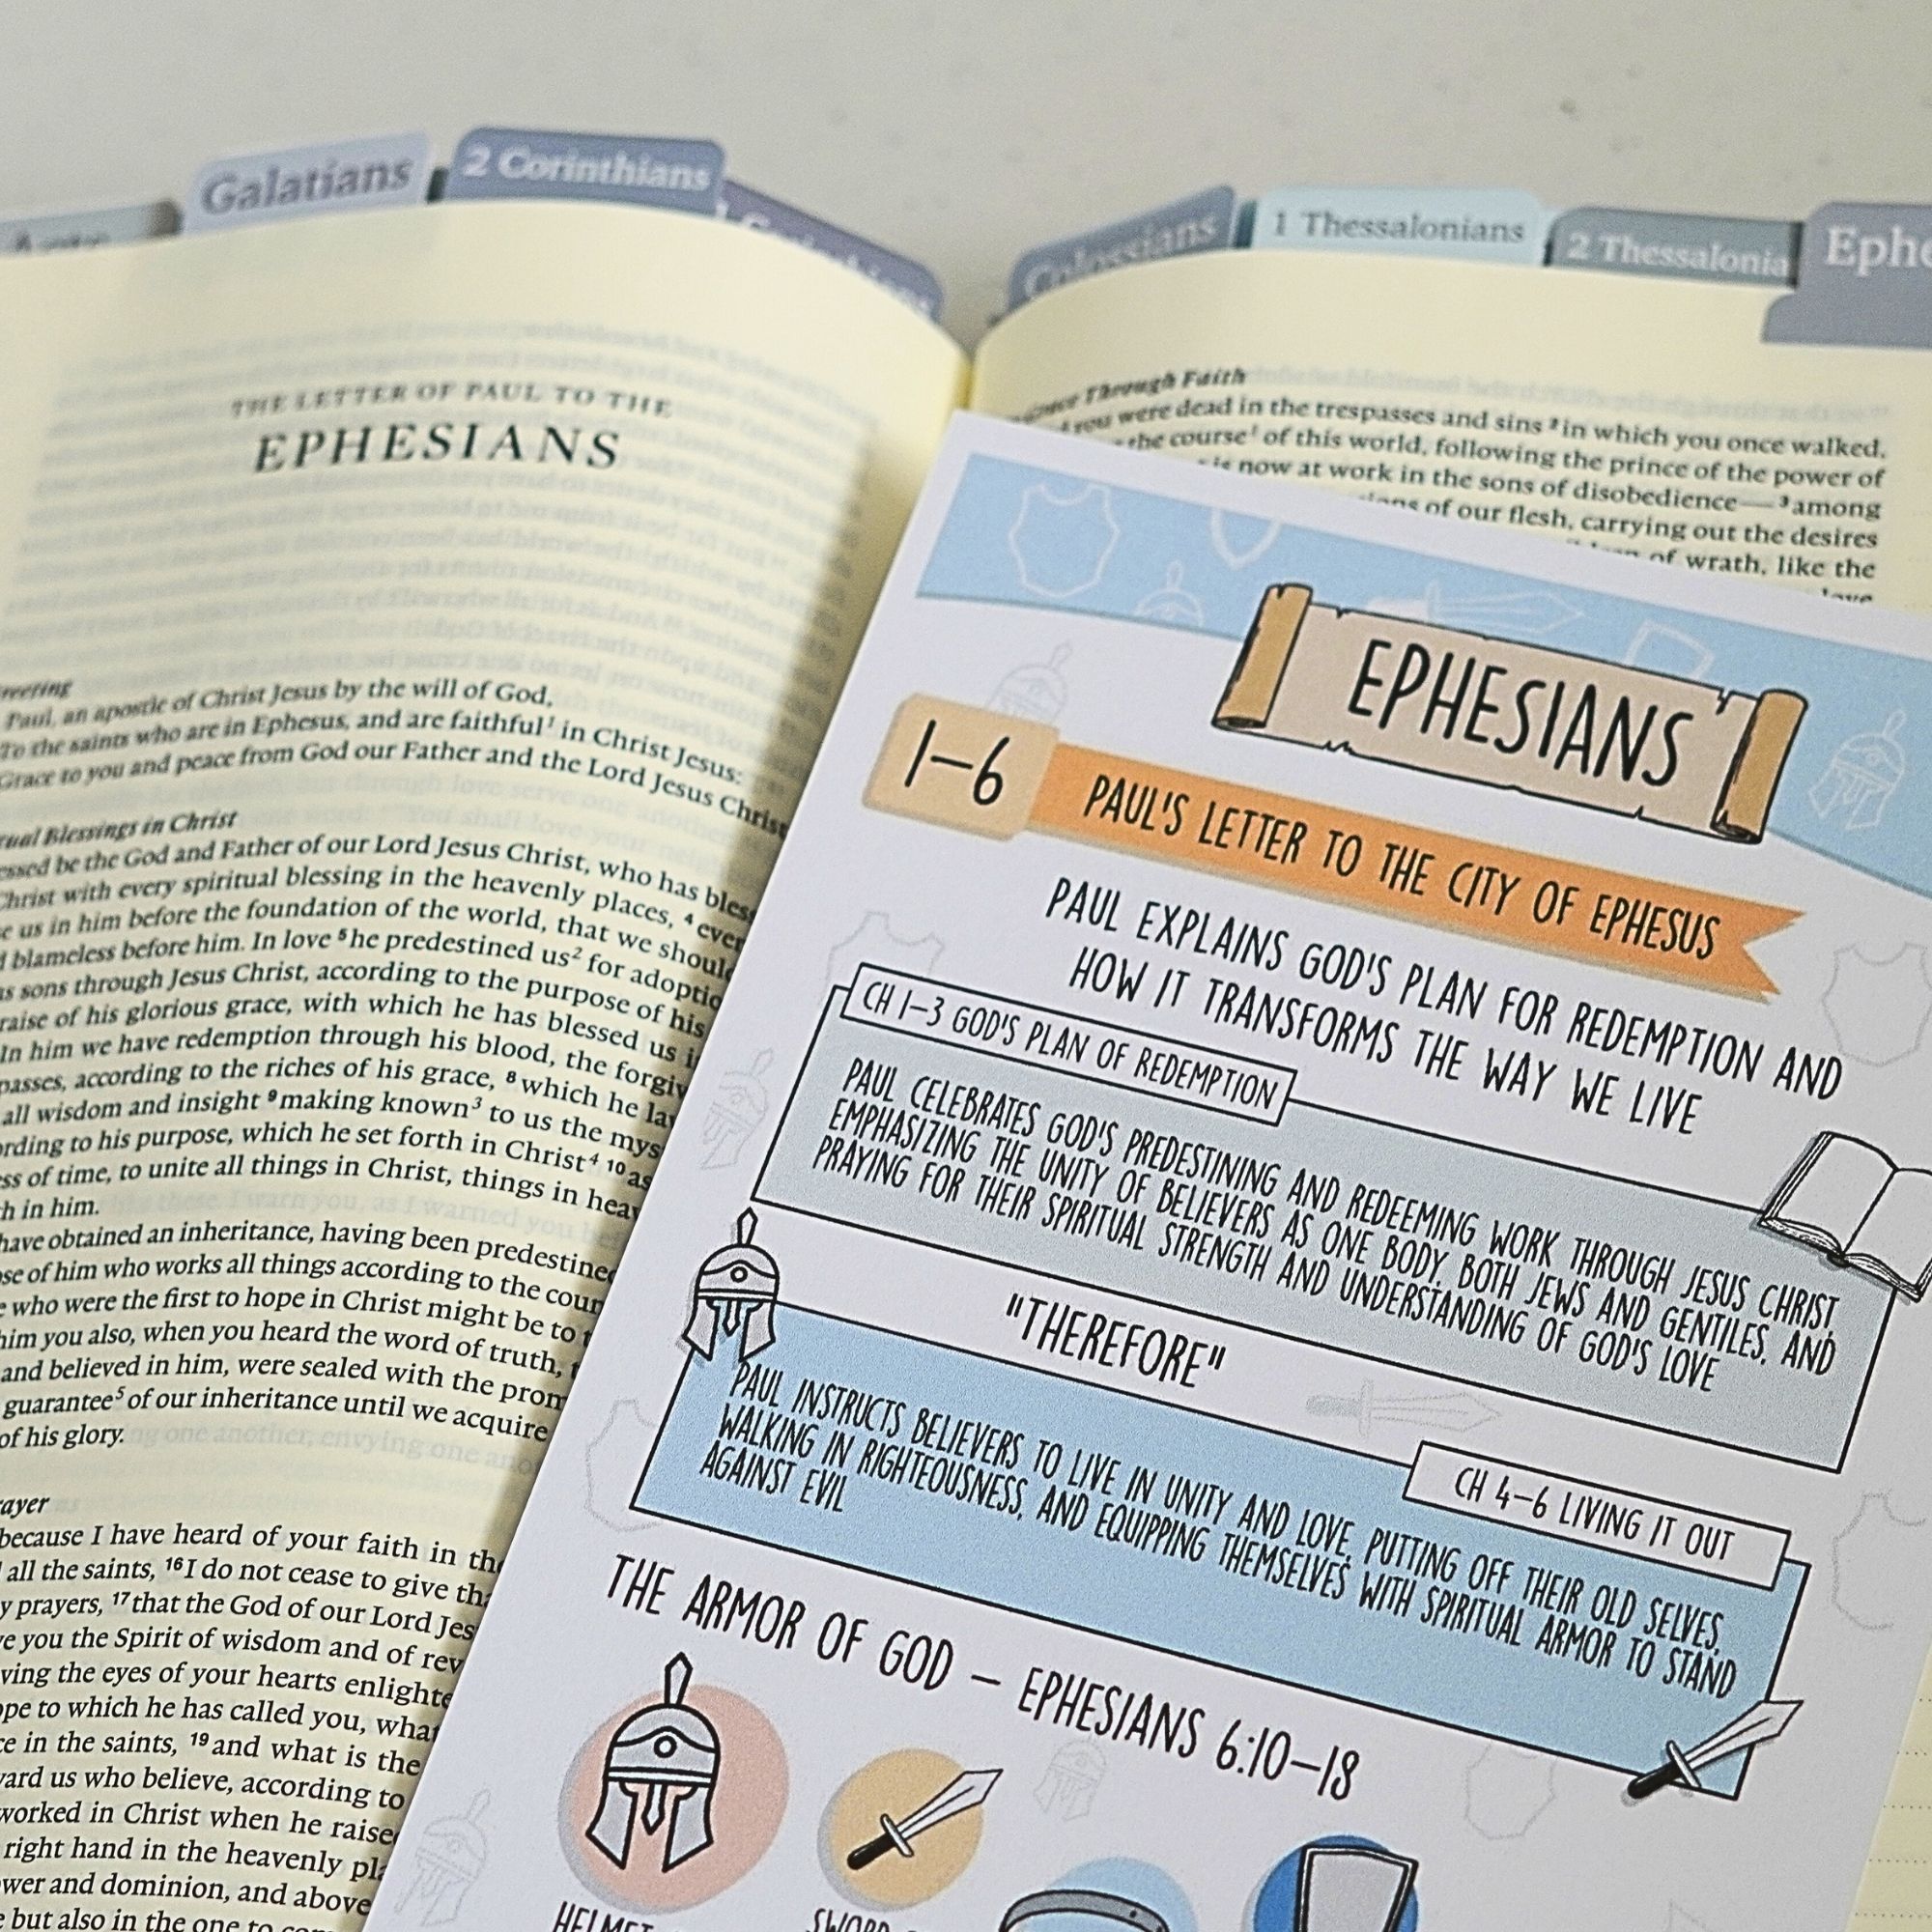 Galatians
2 Corinthians
Colossians
1 Thessalonians
2 Thessalonia
Ephe
THE LETTER OF PAUL TO THE
EPHESIANS
reeting
Paul, an apostle of Christ Jesus by the will of God,
To the saints who are in Ephesus, and are faithful¹ in Christ Jesus:
Grace to you and peace from God our Father and the Lord Jesus Chris
tual Blessings in Christ
essed be the God and Father of our Lord Jesus Christ, who has bles
Christ with every spiritual blessing in the heavenly places, ⁴ ever
e us in him before the foundation of the world, that we shoul
d blameless before him. In love ⁵he predestined us² for adoptio
as sons through Jesus Christ, according to the purpose of his
raise of his glorious grace, with which he has blessed us i
In him we have redemption through his blood, the forgiv
passes, according to the riches of his grace, ⁸which he la
all wisdom and insight ⁹making known³ to us the mys
ording to his purpose, which he set forth in Christ⁴ ¹⁰as
ss of time, to unite all things in Christ, things in hea
h in him.
have obtained an inheritance, having been predestine
ose of him who works all things according to the cour
e who were the first to hope in Christ might be to
him you also, when you heard the word of truth,
and believed in him, were sealed with the prom
guarantee⁵ of our inheritance until we acquire
of his glory.
rayer
because I have heard of your faith in the
all the saints, ¹⁶I do not cease to give tha
y prayers, ¹⁷that the God of our Lord Jes
ve you the Spirit of wisdom and of rev
ving the eyes of your hearts enlighte
ope to which he has called you, what
ce in the saints, ¹⁹and what is the
ward us who believe, according to
worked in Christ when he raise
right hand in the heavenly pla
wer and dominion, and above
e but also in the one to com
Through Faith
you were dead in the trespasses and sins ²in which you once walked,
the course¹ of this world, following the prince of the power of
is now at work in the sons of disobedience—³among
of our flesh, carrying out the desires
of wrath, like the
love
EPHESIANS
1-6
PAUL'S LETTER TO THE CITY OF EPHESUS
PAUL EXPLAINS GOD'S PLAN FOR REDEMPTION AND
HOW IT TRANSFORMS THE WAY WE LIVE
CH 1-3 GOD'S PLAN OF REDEMPTION
PAUL CELEBRATES GOD'S PREDESTINING AND REDEEMING WORK THROUGH JESUS CHRIST
EMPHASIZING THE UNITY OF BELIEVERS AS ONE BODY, BOTH JEWS AND GENTILES, AND
PRAYING FOR THEIR SPIRITUAL STRENGTH AND UNDERSTANDING OF GOD'S LOVE
"THEREFORE"
CH 4-6 LIVING IT OUT
PAUL INSTRUCTS BELIEVERS TO LIVE IN UNITY AND LOVE, PUTTING OFF THEIR OLD SELVES,
WALKING IN RIGHTEOUSNESS, AND EQUIPPING THEMSELVES WITH SPIRITUAL ARMOR TO STAND
AGAINST EVIL
THE ARMOR OF GOD - EPHESIANS 6:10-18
HELMET
SWORD